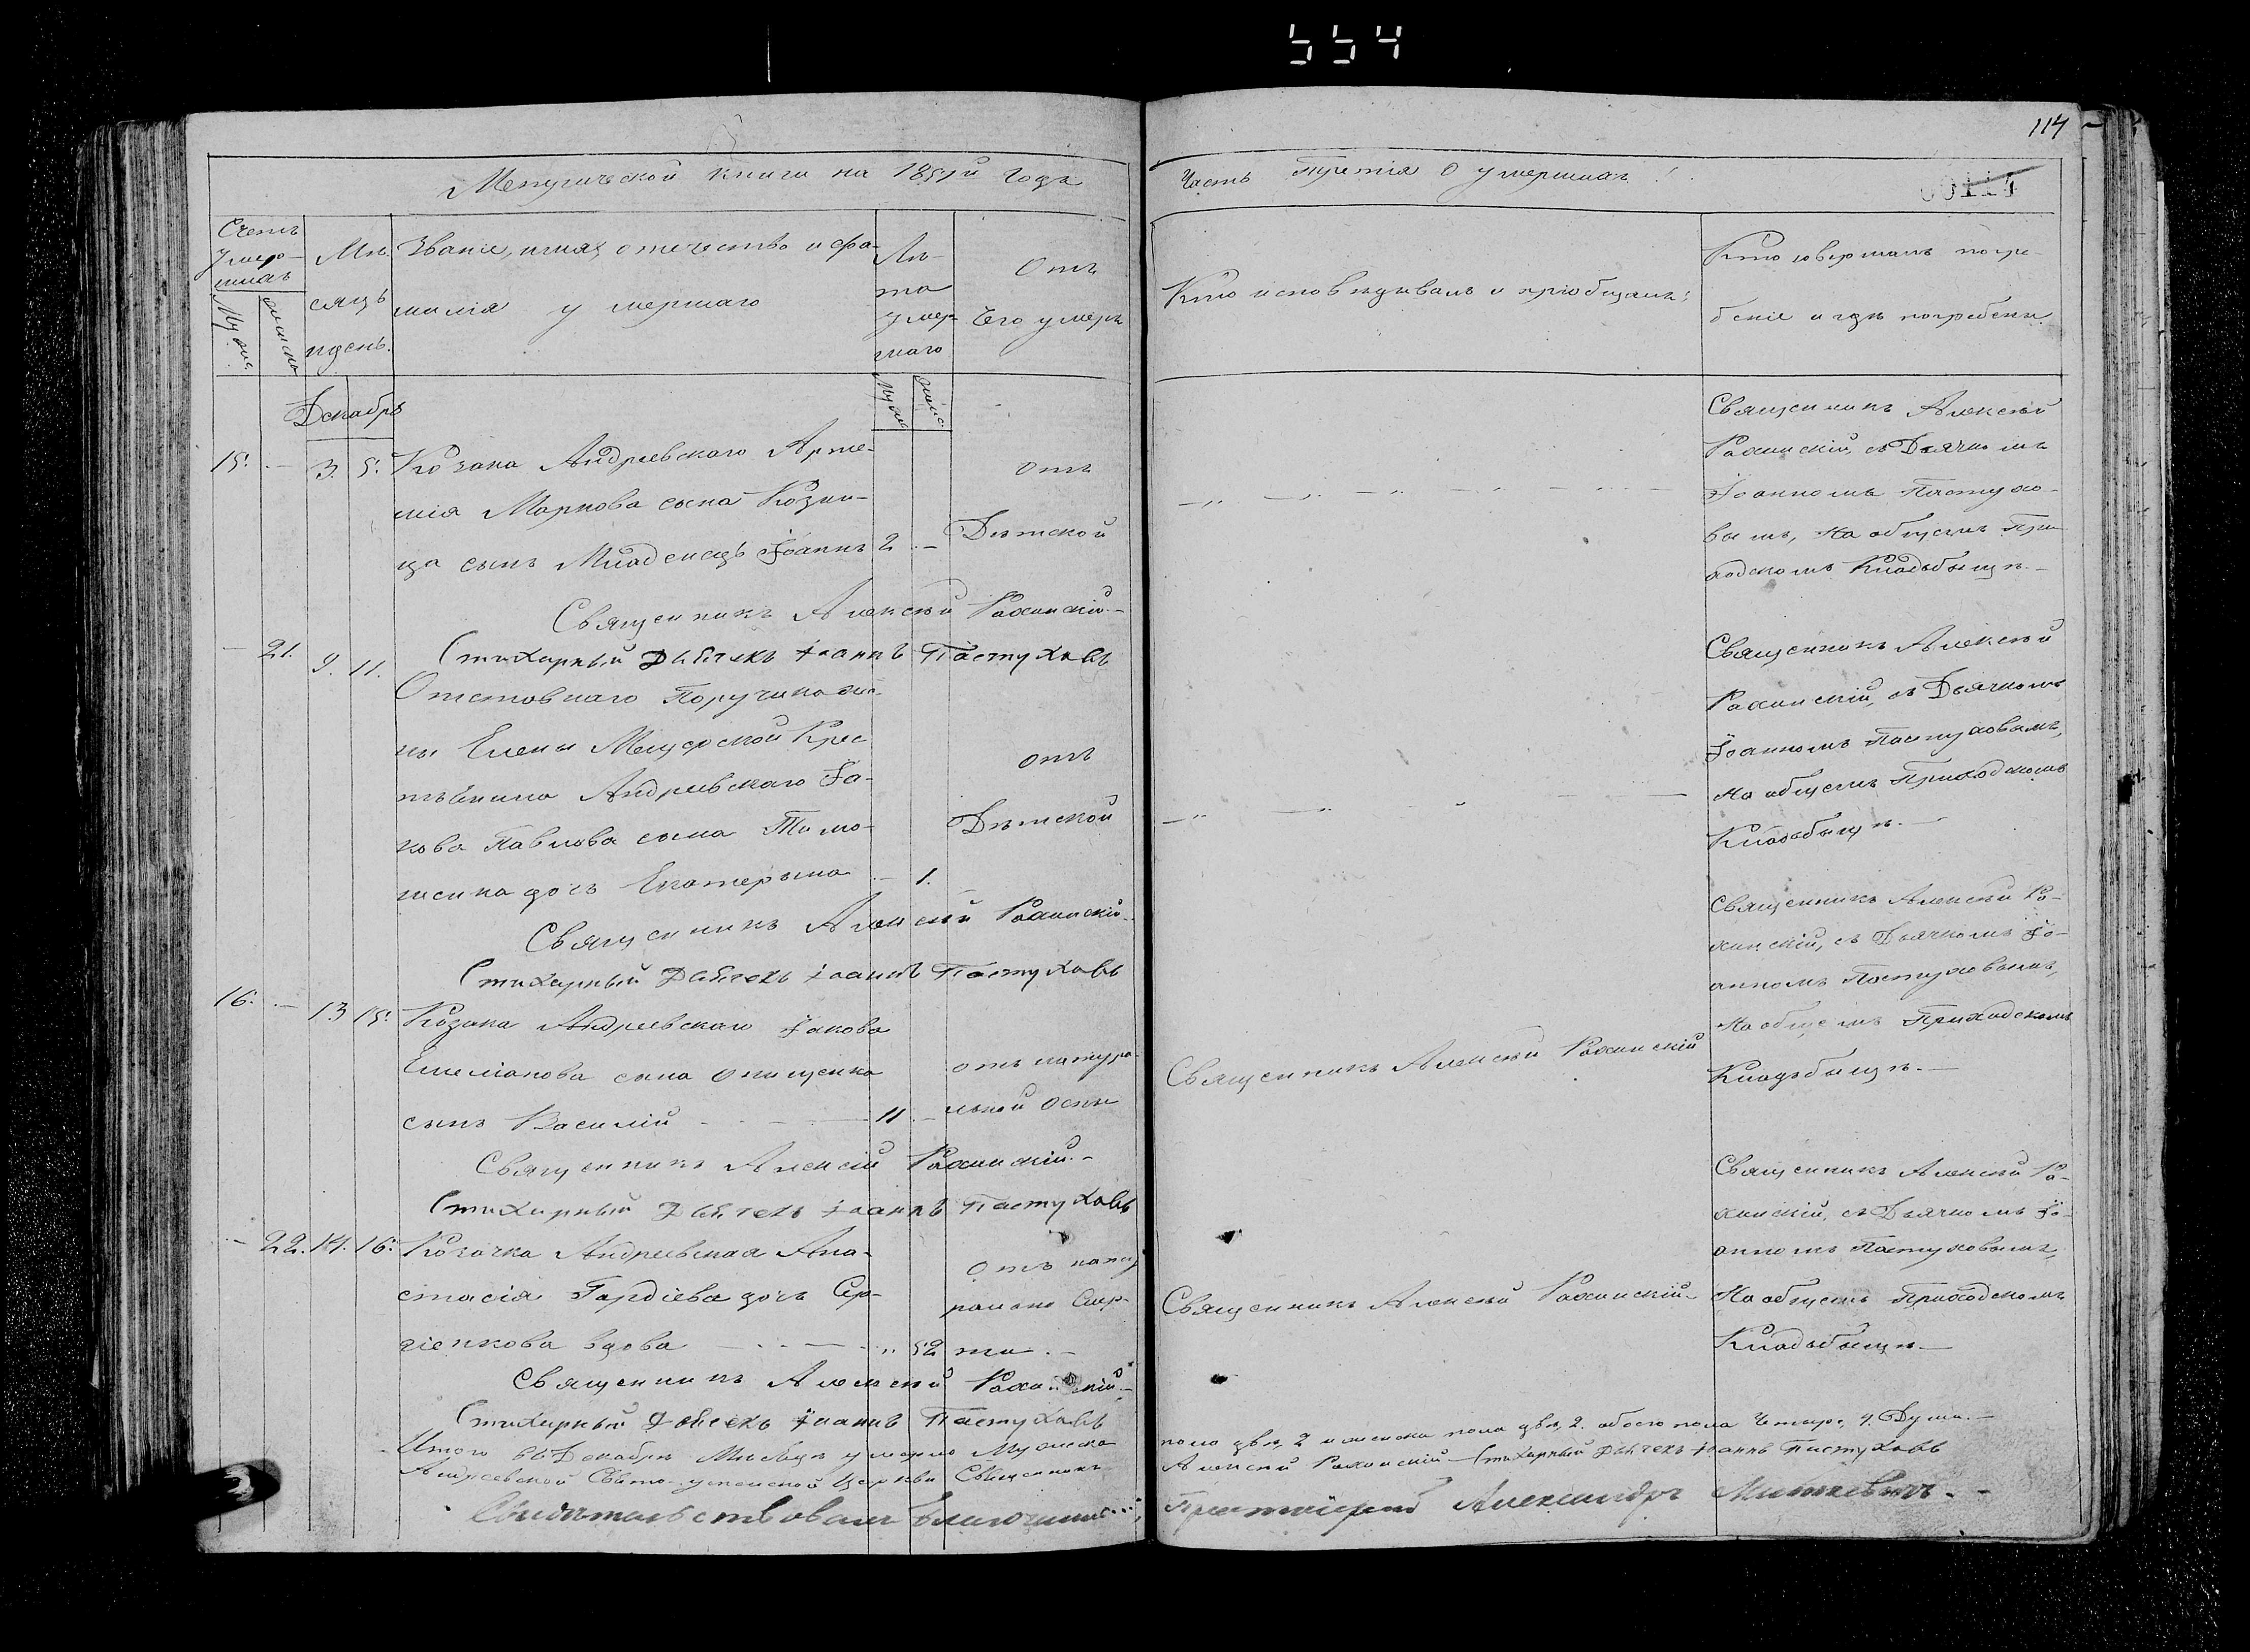 554
114
00114
Метрической книги на 1851й Годъ
Часть Третія О умершихъ
Счетъ
Умер-
шихъ
Мужск.
Женска
Мѣ-
сяцъ
и день.
Званіе, имя, отечество и фа-
милія умершаго
Лѣ-
та
умер-
шаго
Отъ
Чего умеръ
Кто исповѣдывалъ и пріобщалъ
Кто совершалъ погре-
беніе и гдѣ погребены
Декабрь
15. - 3. 5.
Козака Андреевскаго Арте-
мія Маркова сына Козин-
ца сынъ Младенецъ Іоаннъ 2 -
отъ
Дѣтской
Священникъ Алексѣй
съ Дьячкомъ
Іоанномъ Пастухо-
вымъ, На общемъ При-
ходскомъ Кладбищѣ. -
Священникъ Алексѣй
Стихарный Дьячекъ Іоаннъ Пастуховъ
- 21. 9. 11.
Отставнаго Поручика же-
ны Елены Мещерской Крес
тьянина Андреевскаго Іа-
кова Павлова сына Тимо-
шенка дочь Екатерына - 1.
отъ
Дѣтской
Священникъ Алексѣй
съ Дьячкомъ
Іоанномъ Пастуховымъ,
На общемъ Приходскомъ
Кладбищѣ. -
Священникъ Алексѣй
Стихарный Дьячекъ Іоаннъ Пастуховъ
16. - 13 15.
Козака Андреевскаго Іакова
Емеліанова сына Онищенка
сынъ Василій 11 -
отъ натура-
льной Оспы
Священникъ Алексѣй
Священникъ Алексѣй
съ Дьячкомъ Іо-
анномъ Пастуховымъ,
На общемъ Приходскомъ
Кладбищѣ. -
Священникъ Алексѣй
Стихарный Дьячекъ Іоаннъ Пастуховъ
- 22. 14. 16.
Козачка Андреевская Ана-
стасія Гордіева дочь Сер-
гіенкова вдова 52
Отъ нату
ральной Смер-
ти. -
Священникъ Алексѣй
Священникъ Алексѣй
съ Дьячкомъ Іо-
анномъ Пастуховымъ,
На общемъ Приходскомъ
Кладбищѣ. -
Священникъ Алексѣй
Стихарный Дьячекъ Іоаннъ Пастуховъ
Итого въ Декабрѣ Мѣсяцѣ умерло Мужеска
пола два, 2 и женска пола двѣ, 2. обоего пола Четыре, 4. Душъ. -
Андреевской Свято-успенской Церкви Священникъ
Алексѣй Стихарный Дьячекъ Іоаннъ Пастуховъ
Свидѣтельствовалъ Благочинный
Протоіерей Александръ